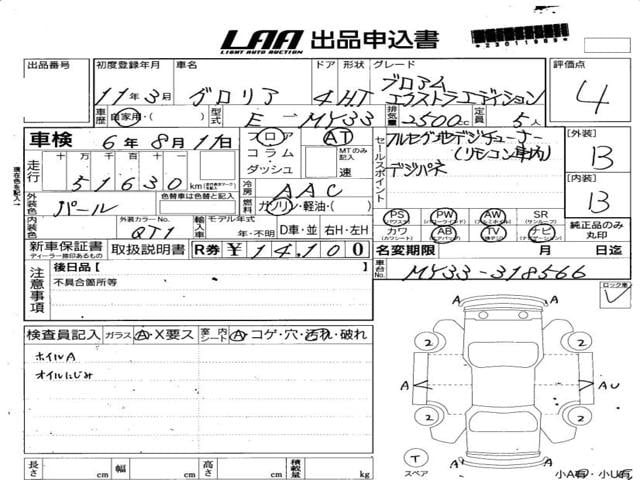 LAA 出品申込書
LIGHT AUTO AUCTION
*230119869*
出品番号 初度登録年月 車名 ドア 形状 グレード 評価点
11年3月 グロリア 4 HT ブロアム エクストラエディション 4
車歴 自家用・( ) 型式 E-MY33 排気量 2500cc 定員 5人
車検 6年8月11日 フロア AT フルセグ地デジチューナー [外装]
コラム・ MTのみ記入 (リモコン車内) B
走行 十 万 千 百 十 一 ダッシュ 速 セールスポイント デジパネ
現在色を記入→ 51630 km 冷房 AAC [内装]
外装色 パール 色替車は色替と記入 燃料 ガソリン・軽油・( ) B
PS PW AW SR
(パワステ) (パワーウインド) (アルミホイル) (サンルーフ)
内装色 外装カラーNo. QT1 輸入車 モデル年式 年・不明 D車・並 右H・左H カワ AB TV ナビ 純正品のみ丸印
(カワシート) (エアバック) (ナビゲーション)
新車保証書 取扱説明書 R券 ¥14,100 名変期限 月 日迄
ディーラー捺印あるもの
注意事項 後日品[ ] 車台No. MY33-318566
不具合箇所等 ロック車
検査員記入 ガラス A・X要ス 室内シート A・コゲ・穴・汚れ・破れ
ホイルA
オイルにじみ
A
2 2
A AU
2 2
T A
スペア
長さ cm 幅 cm 高さ cm 積載量 kg 小A有・小U有